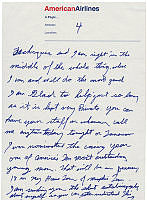 AmericanAirlines
In Flight...
Altitude;
Location;
4
and I am right in the
middle of the whole thing, also
I am and will do the most good
I am Glad to help just so long
as it is kept very Private. You can
have your staff or whomever call
me anytime today, tonight or Tomorrow
I was nominated this coming year
one of America's Ten Most outstanding
young men. That will be in January
18 in my Home Town of Memphis Tenn.
I am sending you the short autobiography
about myself so you can understand this